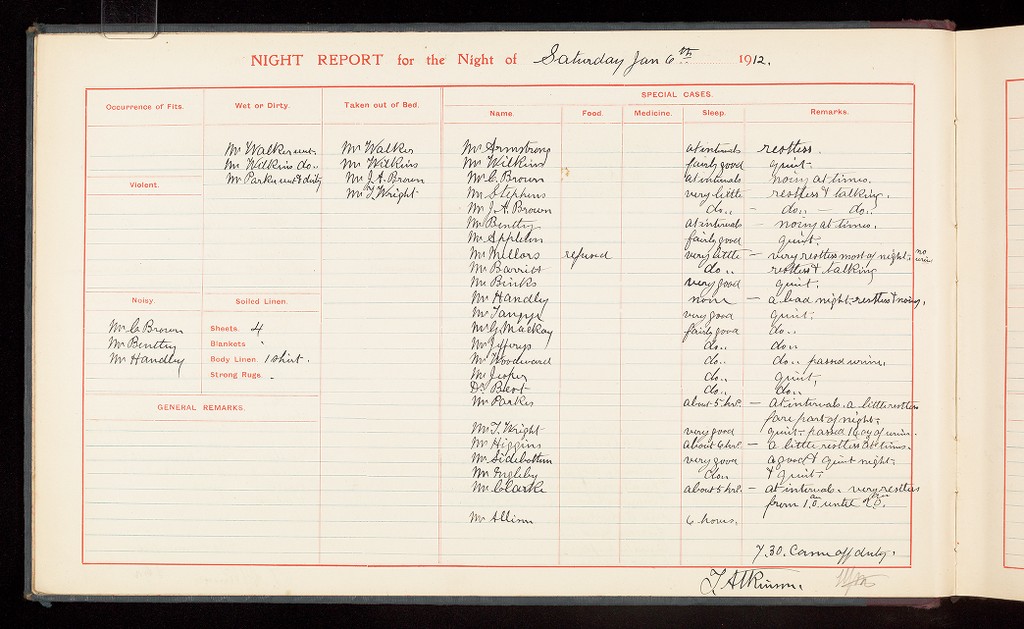 NIGHT REPORT for the Night of Saturday Jan 6th 1912.
Occurrence of Fits.
Wet or Dirty.
Mr Walker wet.
Mr Wilkins do..
Mr Parker wet & dirty
Taken out of Bed.
Mr Walker
Mr Wilkins
Mr J.A. Brown
Mr T. Wright
Violent.
Noisy.
Mr C. Brown
Mr Benttey
Mr Handley
Soiled Linen.
Sheets. 4
Blankets
Body Linen. 1 shirt.
Strong Rugs. -
GENERAL REMARKS.
SPECIAL CASES.
Name. Food. Medicine. Sleep. Remarks.
Mr Armstrong at intervals restless.
Mr Wilkins fairly good quiet.
Mr C. Brown at intervals noisy at times.
Mr Stephens very little restless & talking.
Mr J. A. Brown do.. — do.. — do..
Mr Benttey at intervals — noisy at times.
Mr Appleton fairly good quiet.
Mr Millars refused very little — very restless most of night. no urine
Mr Barritt do.. restless & talking
Mr Binks very good quiet.
Mr Handley none — a bad night. restless & noisy.
Mr very good quiet.
Mr G. Mackay fairly good do..
Mr Jeffreys do.. do..
Mr Woodward do.. do.. passed urine.
Mr Jesper do.. quiet.
Dr Best do.. do..
Mr Parker about 5 hrs. — at intervals. a little restless
fore part of night.
Mr T. Wright very good quiet. passed of urine.
Mr Higgins about 6 hrs. — a little restless at times.
Mr Sidebottom very good a good & quiet night.
Mr Ingleby do.. & quiet.
Mr Clarke about 5 hrs. — at intervals. very restless
from 1.0 until
Mr Allison 6 hours.
7.30. Came off duty.
T Atkinson.